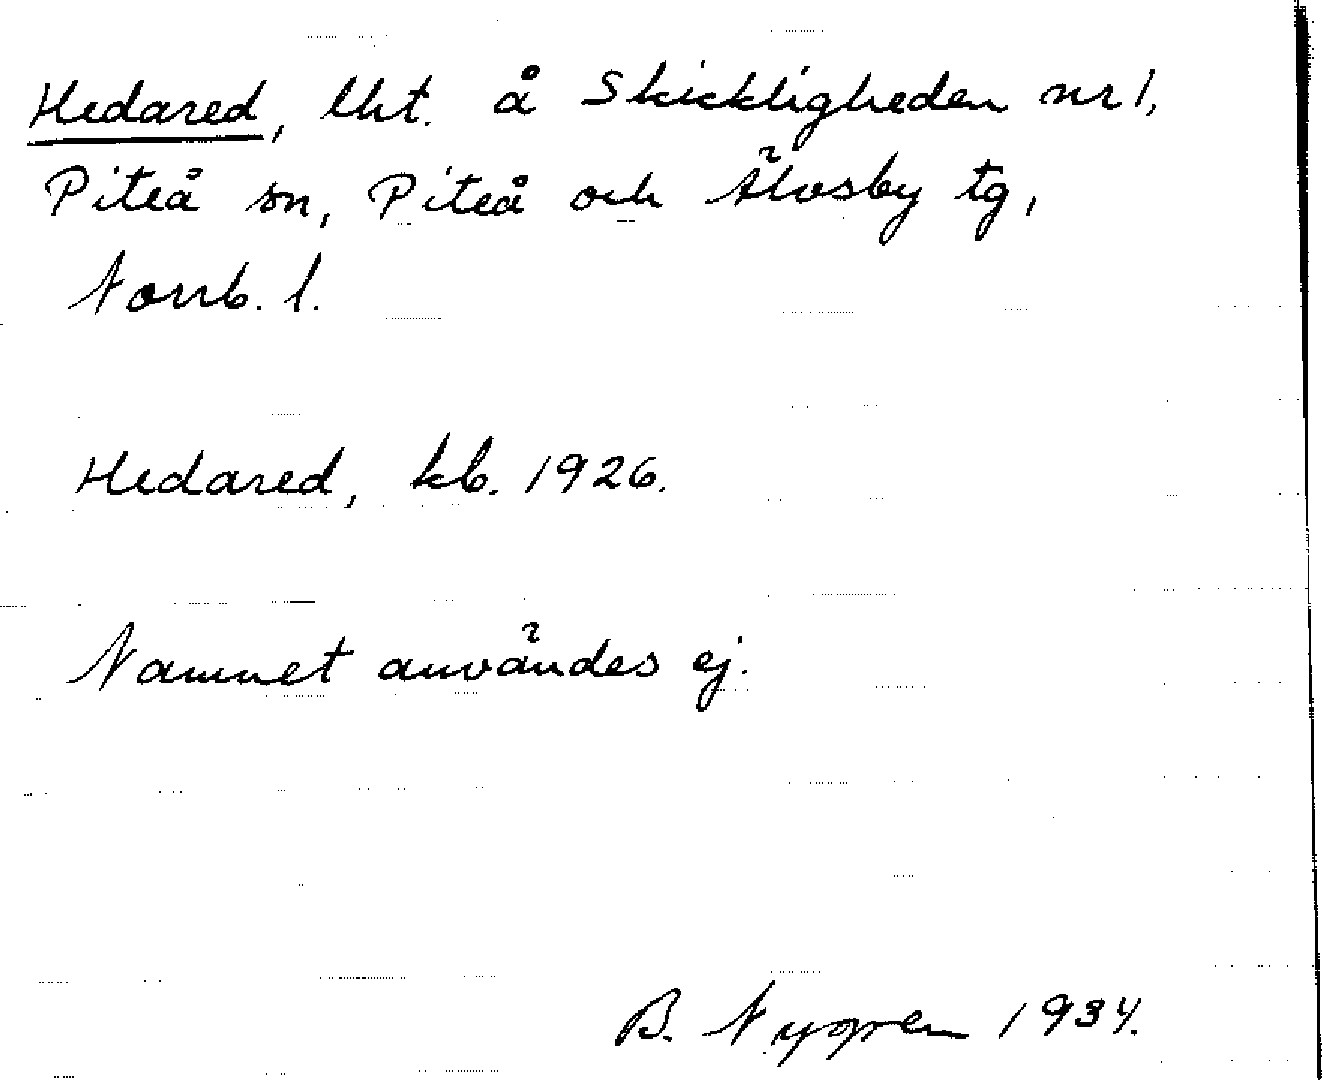 Hedared, lht. å Skickligheden nr 1,
Piteå sn, Piteå och Älvsby tg,
Norrb. l.
Hedared, kb. 1926.
Namnet användes ej.
B. Nygren 1934.